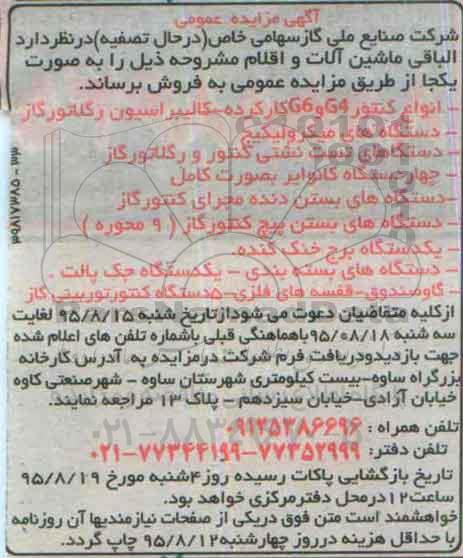 آگهی مزایده عمومی
شرکت صنایع ملی گازسهامی خاص(درحال تصفیه)درنظردارد
الباقی ماشین آلات و اقلام مشروحه ذیل را به صورت
یکجا از طریق مزایده عمومی به فروش برساند.
- انواع کنتور G4 و G6 کارکرده-کالیبراسیون رگلاتورگاز
- دستگاه های میکرولیکیج
- دستگاهای تست نشتی کنتور و رگلاتورگاز
- چهاردستگاه کانوایر بصورت کامل
-دستگاه های بستن دنده مجرای کنتورگاز
- دستگاه های بستن پیچ کنتورگاز ( ۹ محوره )
- یکدستگاه برج خنک کننده.
- دستگاه های بسته بندی - یکدستگاه جک پالت .
- گاوصندوق-قفسه های فلزی-۵دستگاه کنتورتوربینی گاز
ازکلیه متقاضیان دعوت می شودازتاریخ شنبه ۹۵/۸/۱۵ لغایت
سه شنبه ۹۵/۰۸/۱۸باهماهنگی قبلی باشماره تلفن های اعلام شده
جهت بازدیدودریافت فرم شرکت درمزایده به آدرس کارخانه
بزرگراه ساوه-بیست کیلومتری شهرستان ساوه - شهرصنعتی کاوه
خیابان آزادی-خیابان سیزدهم - پلاک ۱۳ مراجعه نمایند.
تلفن همراه : ۰۹۱۲۵۳۸۶۶۹۶
تلفن دفتر: ۷۷۳۵۲۹۹۹-۷۷۳۴۴۱۹۹-۰۲۱
تاریخ بازگشایی پاکات رسیده روز۴شنبه مورخ ۹۵/۸/۱۹
ساعت۱۲درمحل دفترمرکزی خواهد بود.
خواهشمند است متن فوق دریکی از صفحات نیازمندیها آن روزنامه
با حداقل هزینه درروز چهارشنبه۹۵/۸/۱۲ چاپ گردد.
۳۹۸۱۷۳۸۵-۳۳